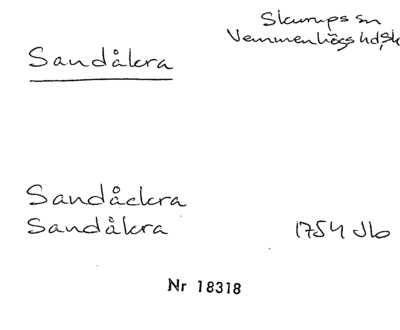 Skurups sn
Vemmenhögs hd, Sk
Sandåkra
Sandåckra
Sandåkra 1754 Jb
Nr 18318